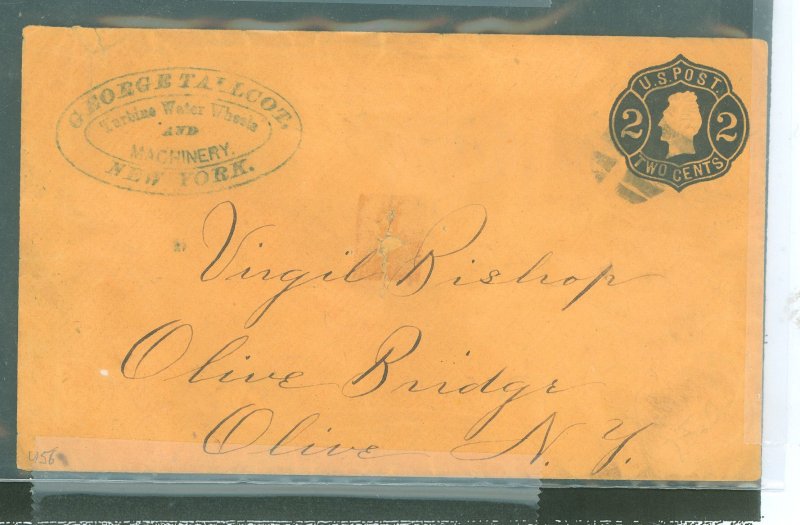 GEORGE TALLCOT,
Turbine Water Wheels
AND
MACHINERY.
NEW YORK.
U.S. POST.
2 2
TWO CENTS
Virgil Bishop
Olive Bridge
Olive N. Y.
U56